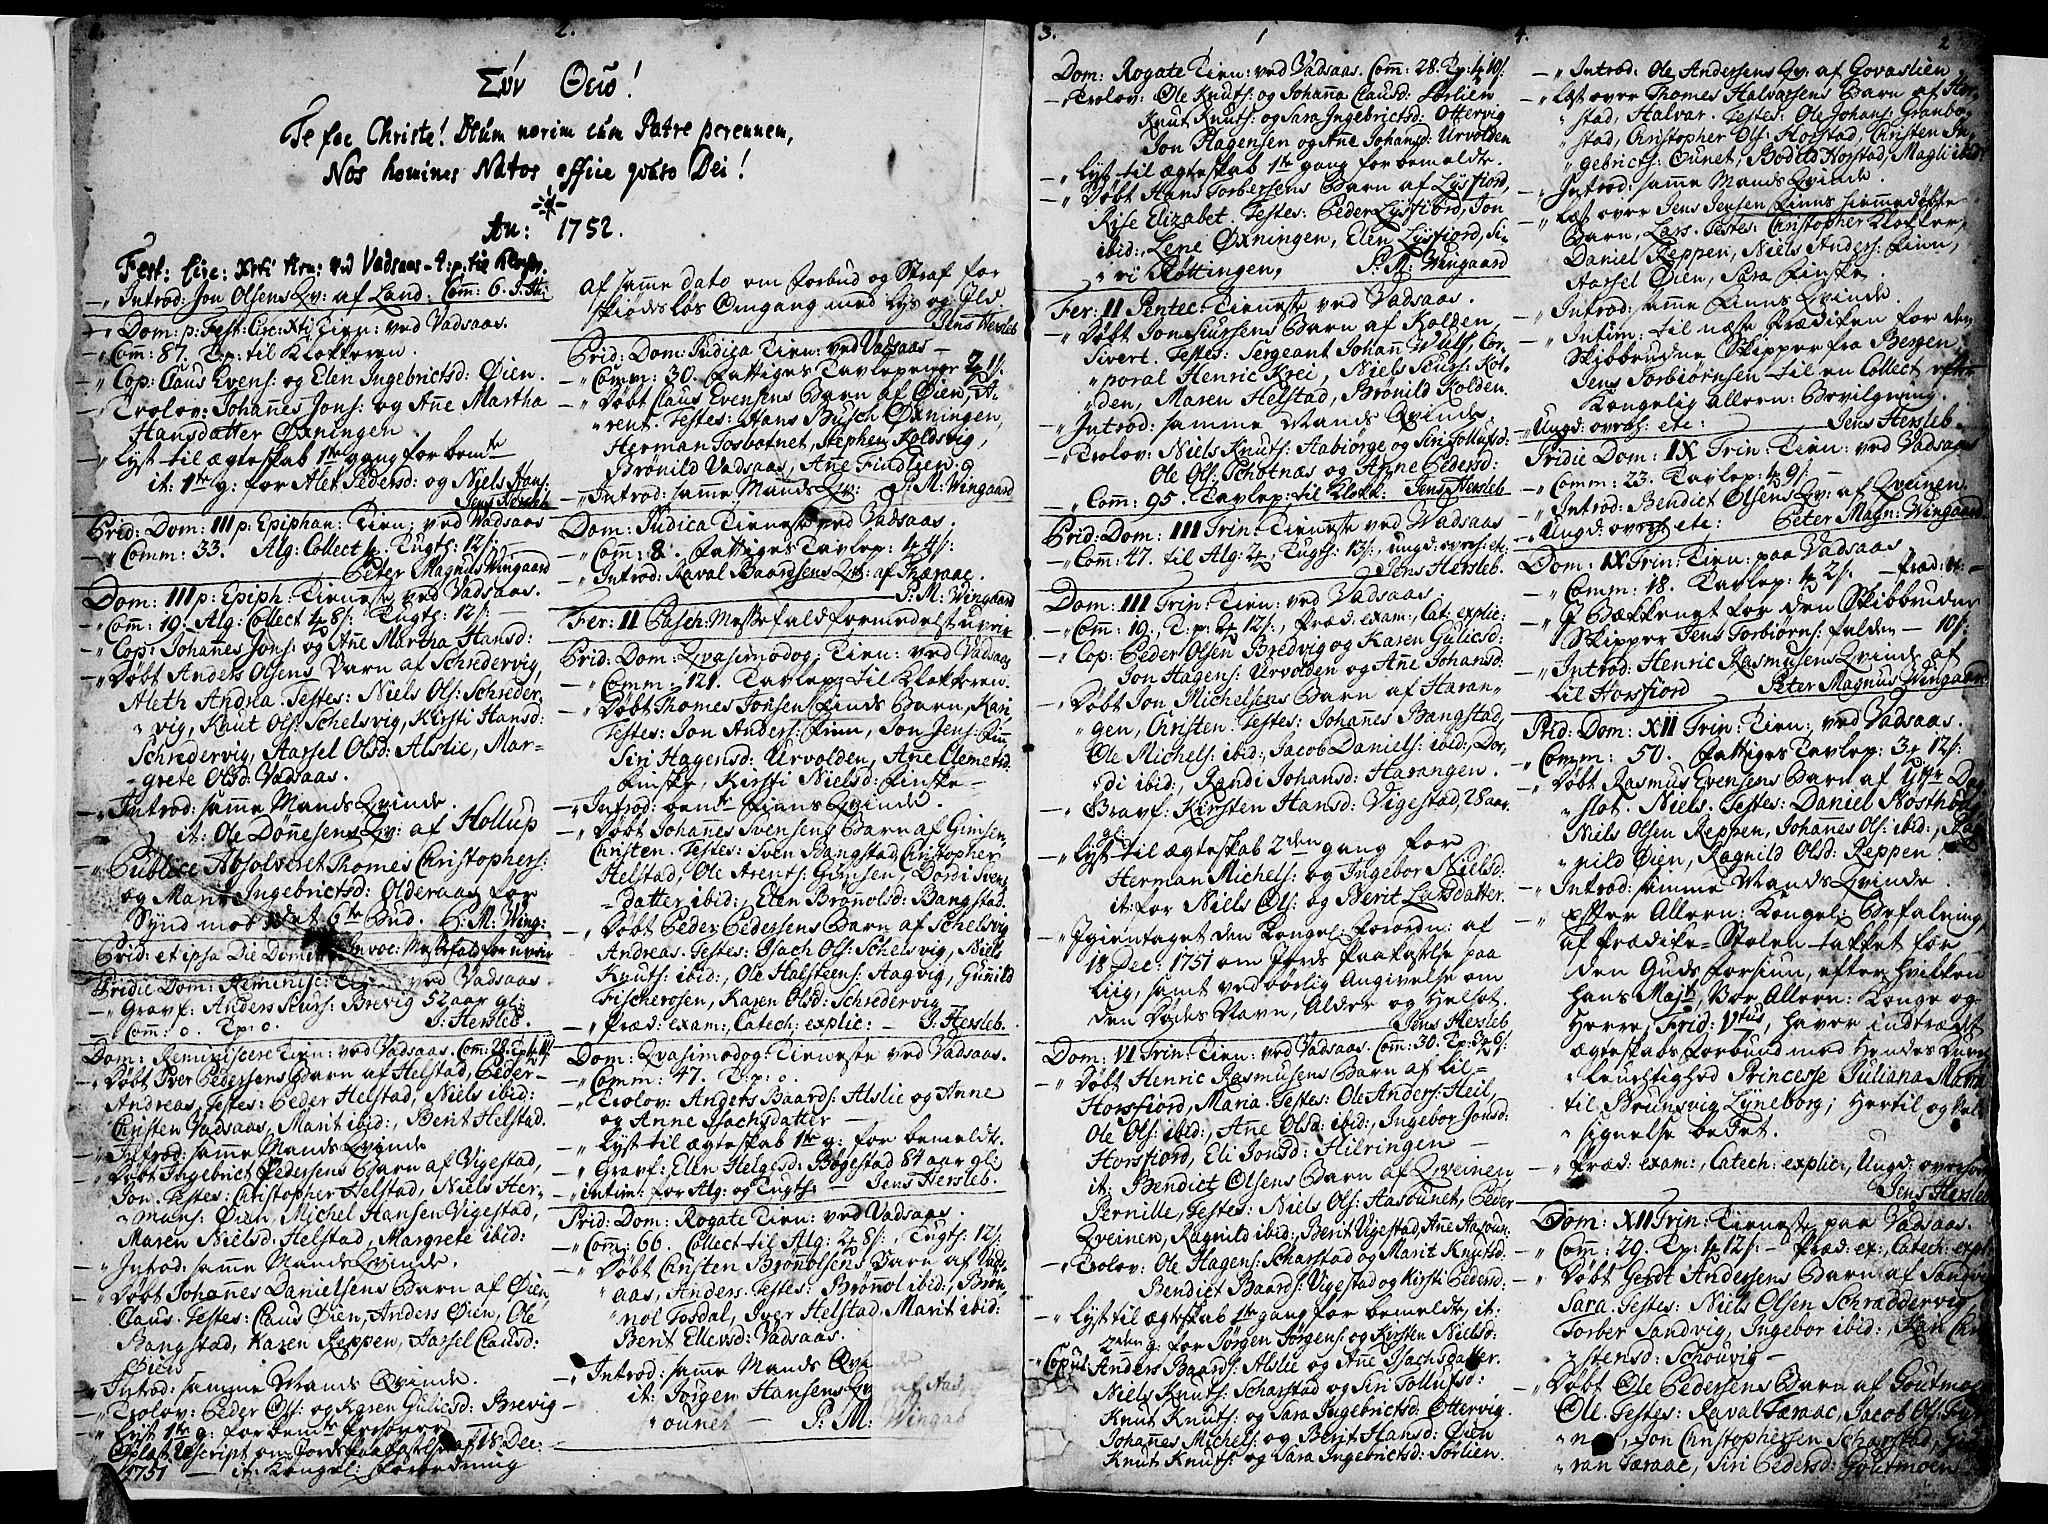 1.
2.
Σύν Θεῷ!
Te fac Christe! Deum norim cum Patre perennem,
Nos homines Natos effice qvæso Dei!
An: 1752.
Fest: Circ: Xsti ved Vadsaas
" Introd: Jon Olsens Qv: af Land. Com: 6.
" Dom: p: Fest: Circ: Xti Tien: ved Vadsaas.
" Com: 87. T:p: til Klokkeren.
" Cop: Claus Evens: og Elen Ingebrictsd: Øien.
" Trolov: Johannes Jons: og Anne Martha
Hansdatter Øxningen
" Lyst til ægteskab 1te gang for bemte
it: 1te g: for Alet Pedersd: og Niels Hans:
Jens Hersleb
Prid: Dom: III p: Epiphan: Tien: ved Vadsaas
" Comm: 33. Alg: Collect Tugth: 12/:
Peter Magnus Wingaard
Dom: III p: Epiph: Tieneste ved Vadsaas.
" Com: 19. Alg: Collect 8/: Tugth: 12/:
" Cop: Johannes Jons: og Anne Martha Hansd:
" Døbt Anders Olsens Barn af Schredervig,
Aleth Andrea. Testes: Niels Ols: Schreder
vig, Knut Ols: Schelsvig, Kirsti Hansd:
Schredervig, Aassel Olsd: Alslie, Mar-
grete Olsd: Vadsaas.
" Introd: samme Mands Qvinde.
it: Ole Dönnesens Qv: af Hollup
" Publice Absolveret Thomes Christophers:
og Marite Ingebrictsd: Olderaas for
Synd mod det 6te Bud. P: M: Wing:
Prid: et ipsa Die Dom: Invoc: Messefald for uveir
Pridie Dom: Reminisc: Tien: ved Vadsaas
" Gravf: Anders Siurs: Brevig 52 aar gl:
" Com: 0. T:p: 0. J: Hersleb.
Dom: Reminiscere Tien: ved Vadsaas. Com: 28.
" Døbt Iver Pedersens Barn af Helstad, Peder
Andreas, Testes: Peder Helstad, Niels ibid:
Christen Vadsaas, Marit ibid:, Berit Helstad.
" Introd: samme Mands Qvinde
" Døbt Ingebrict Pedersens Barn af Vigestad,
Jon. Testes: Christopher Helstad, Niels Her-
mans: Øien, Michel Hansen Vigestad,
Maren Nielsd: Helstad, Margrete ibid:
" Introd: samme Mands Qvinde.
" Døbt Johannes Danielsens Barn af Øien,
Claus. Testes: Claus Øien, Anders Øien, Ole
Bangstad, Karen Reppen, Aassel Clausd:
Øien
" Introd: samme Mands Qvinde.
" Trolov: Peder Ols: og Karen Gulicsd: Brevig
" Lyst 1te g: for bemte Personer
Oplæst Rescript om Jords Paakastelse af 18 Dec:
1751 — it: Kongel: Forordning
af samme dato om Forbud og Straf for
skiødesløs Omgang med Lys og Ild
Jens Hersleb
Prid: Dom: Judica Tien: ved Vadsaas
" Comm: 30. Fattiges Tavlepenge 1/:
" Døbt Claus Evensens Barn af Øien, A-
rent. Testes: Hans Busch Øxningen,
Herman Fosbotnet, Stephen Koldsvig,
Brönild Vadsaas, Anne Findlien.
" Introd: samme Mands Qv: P: M: Wingaard
Dom: Judica Tieneste ved Vadsaas.
" Com: 8. Fattiges Tavlep: 4/:
" Introd: Raval Baardsens Qv: af Tæraac.
P: M: Wingaard
Fer: II Pasch: Messefald formedelst uveir
Prid: Dom: Qvasimodog: Tien: ved Vadsaas
" Comm: 121. Tavlep: til Klokkeren.
" Døbt Thomes Jonsen Finds Barn, Kari,
Testes: Jon Anders: Finn, Jon Jens: Finn,
Siri Hagensd: Urvolden, Anne Clemetsd:
Finske, Kirsti Nielsd: Finske
" Introd: bemte Finns Qvinde.
" Døbt Johannes Svensens Barn af Gimsen,
Christen. Testes: Sven Bangstad, Christopher
Helstad, Ole Arents: Gimsen, Dordi Svens
datter ibid:, Elen Brønolsd: Bangstad.
" Døbt Peder Pedersens Barn af Schelsvig
Andreas. Testes: Isach Ols: Schelsvig, Niels
Knuts: ibid:, Ole Halsteens: Aagvig, Gunild
Fischerosen, Karen Olsd: Schredervig
" Præd: exam:, Catech: explic: — J: Hersleb.
Dom: Qvasimodog: Tieneste ved Vadsaas.
" Comm: 47. T:p: 0.
" Trolov: Anders Baards: Alslie og Anne
og Anne Isachsdatter
" Lyst til ægteskab 1te g: for bemeldte.
" Gravf: Elen Helgesd: Bøgestad 84 aar gl:
" intim: for Alg: og Tugth: — Jens Hersleb.
Prid: Dom: Rogate Tien: ved Vadsaas.
" Com: 66. Collect til Alg: 8/:, Tugth: 12/:
" Døbt Christen Brönolsens Barn af Vads-
aas, Anders. Testes: Brönnol ibid:, Brön-
nol Fosdal, Iver Helstad, Marit ibid:
Berit Ellevsd: Vadsaas.
" Introd: samme Mands Qvinde
it: Jörgen Hansens Qv af Aas
ounet — P: M: Wingab
3.
1
Dom: Rogate Tien: ved Vadsaas. Com: 28. T:p: 10/:
" Trolov: Ole Knuts: og Johanna Clausd: Sørlien
Knut Knuts: og Sara Ingebrictsd: Ottervig
Jon Hagensen og Anne Johansd: Urvolden
" Lyst til ægteskab 1te gang for bemeldte.
" Døbt Hans Torbersens Barn af Lysfiord,
Rise Elizabet. Testes: Peder Lysfiord, Jon
ibid:, Lene Øxningen, Elen Lysfiord, Si-
ri Røttingen, P: M: Wingaard
Fer: II Pentec: Tieneste ved Vadsaas.
" Døbt Jon Siursens Barn af Kolden,
Sivert. Testes: Sergeant Johan Wulf Cor-
poral Henric Krei, Niels Siurs: Kol-
den, Maren Helstad, Brönild Kolden.
" Introd: samme Mands Qvinde.
" Trolov: Niels Knuts: Aabiørge og Siri Tollufsd:
Ole Ols: Schotnæs og Anne Pedersd:
" Com: 95. Tavlep: til Klokk: Jens Hersleb
Prid: Dom: III Trin: Tieneste ved Vadsaas
" Com: 47. til Alg: Tugth: 13/:, ungd: overh: etc:
Jens Hersleb.
Dom: III Trin: Tien: ved Vadsaas.
" Com: 19., T:p: 12/:, Præd: exam: Cat: explic:
" Cop: Peder Olsen Bredvig og Karen Gulicsd:
Jon Hagens: Urvolden og Anne Johansd:
" Døbt Jon Michelsens Barn af Haran-
gen, Christen. Testes: Johannes Bangstad,
Ole Michels: ibid:, Jacob Daniels: ibid:, Dor-
di ibid:, Randi Johansd: Harangen.
" Gravf: Kirsten Hansd: Vigestad, 28 aar
gl:
" Lyst til ægteskab 2den gang for
Herman Michels: og Ingebor Nielsd:
it: for Niels Ols: og Berit Larsdatter.
" Igientaget den Kongel: Forordn: af
18 Dec: 1751 om Jords Paakastelse paa
Liig, samt ved børlig Angivelse om
den Dødes Navn, Alder og Helsot.
Jens Hersleb
Dom: VI Trin: Tien: ved Vadsaas. Com: 30. T:p: 9/:
" Døbt Henric Rasmusens Barn af Lil-
Horsfiord, Maria. Testes: Ole Anders: Heil,
Ole Ols: ibid:, Anne Olsd: ibid:, Ingebor Jonsd:
Horsfiord, Eli Jonsd: Hilringen
it: Bendict Olsens Barn af Qveinen,
Pernille, Testes: Niels Ols: Aasounet, Peder
Qveinen, Ragnild ibid:, Berit Vigestad, Anne Aasoun:
" Trolov: Ole Hagens: Scharstad og Marit Knutsd:
Bendict Baards: Vigestad og Kirsti Pedersd:
" Lyst til ægteskab 1te gang for bemeldte, it:
2den g: for Jørgen Jørgens: og Kirsten Nielsd:
" Copul: Anders Baards: Alslie og Anne Isachsdatter.
Niels Knuts: Scharstad og Siri Tollufsd:
Knut Knuts: og Sara Ingebrictsd: Ottervig.
Johannes Michels: og Berit Hansd: Øien
Knut Knuts: og Sara Ingebrictsd: Sørlien.
4.
2
" Introd: Ole Andersens Qv: af Govaslien
" Læst over Thomes Halvarsens Barn af Hor-
stad, Halvar. Testes: Ole Johans: Granbo-
stad, Christopher Ols: Horstad, Christen In-
gebricts: Ounet, Bodild Horstad, Magli ibid:
" Introd: samme Mands Qvinde.
" Læst over Jens Jensen Finns hiemmedøbte
Barn, Lars. Testes: Christopher Klokker,
Daniel Reppen, Niels Anders: Finn,
Aassel Øien, Sara Finske.
" Introd: samme Finns Qvinde.
" Intim: til næste Prædiken for den
Skibbrudne Skipper fra Bergen
Jens Torbiørnsen til en Collect efter
Kongelig allern: Bevilgning.
" Ungd: overh: etc: Jens Hersleb.
Pridie Dom: IX Trin: Tien: ved Vadsaas
" Comm: 23. Tavlep: 9/:
" Introd: Bendict Olsens Qv: af Qveinen.
" Ungd: overh: etc: Peter Magn: Wingaard
Dom: IX Trin: Tien: paa Vadsaas
" Comm: 18. Tavlep: 2/: — Præd:
" I Bækkenet for den Skibbrudne
Skipper Jens Torbiørns: falden — 10/:
" Introd: Henric Rasmusens Qvinde af
Lil Horsfiord Peter Magnus Wingaard
Prid: Dom: XII Trin: Tien: ved Vadsaas.
" Comm: 50. Fattiges Tavlep: 3 12/:
" Døbt Rasmus Evensens Barn af
slot. Niels. Testes: Daniel
Niels Olsen Reppen, Johannes Ols: ibid:,
nild Øien, Ragnild Olsd: Reppen.
" Introd: samme Mands Qvinde.
" efter Allern: Kongel: Befalning,
af Prædike-Stolen takket for
den Guds Forsiun, efter hvilken
Hans Majt, Vor Allern: Konge og
Herre, Frid: Vtus, haver indtrædt
ægteskabs Forbund med Hendes Dure
leuchtighed Princesse Juliana Maria
til Brunsvig Lyneborg; Hertil og Vel-
signelse bedet.
" Præd: exam:, Catech: explic:, Ungd: overhørt
Jens Hersleb
Dom: XII Trin: Tieneste paa Vadsaas.
" Com: 29. T:p: 12/: — Præd: ex:, Catech: expl:
" Døbt Gerdt Andersens Barn af Sandvig
Sara. Testes: Niels Olsen Schræddervig
Torber Sandvig, Ingebor ibid:, Kari Chri
stensd: Schouvig
" Døbt Ole Pedersens Barn af Goutmoen
Ole. Testes: Raval Tæraac, Jacob Ols:
Jon Christophersen Scharstad,
ran Tæraac, Siri Pedersd: Goutmoen